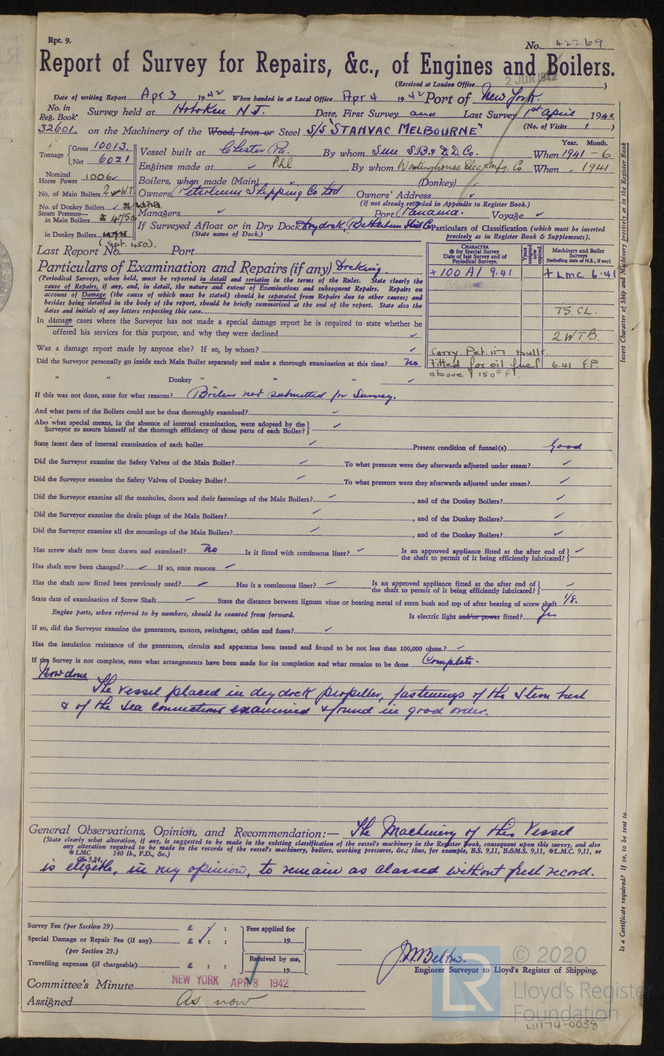 Rpt. 9.
No. 42269
Report of Survey for Repairs, &c., of Engines and Boilers.
(Received at London Office 2 JUN 1942
Date of writing Report Apr 3 1942 When handed in at Local Office Apr 4 1942 Port of New York.
No. in Reg. Book Survey held at Hoboken N.J. Date, First Survey and Last Survey 1st April 1942
32601 on the Machinery of the Wood, Iron or Steel S/S "STANVAC MELBOURNE" (No. of Visits 1 )
Tonnage { Gross 10013 Net 6021 Vessel built at Chester Pa. By whom Sun S.B. & D.D. Co. Year. Month. When 1941 - 6
Engines made at Phl By whom Westinghouse Elec Mfg. Co. When 1941
Nominal Horse Power 1006 Boilers, when made (Main) (Donkey)
No. of Main Boilers 2 WT Owners Petroleum Shipping Co Ltd Owners' Address
(if not already recorded in Appendix to Register Book.)
No. of Donkey Boilers Managers Port Panama. Voyage
Steam Pressure— in Main Boilers in Donkey Boilers
(Spt. 450). If Surveyed Afloat or in Dry Dock Drydock
(State name of Dock.)
Particulars of Classification (which must be inserted precisely as in Register Book & Supplements).
Last Report No. Port
CHARACTER for Special Survey Date of last Survey and of Periodical Surveys.
Machinery and Boiler Surveys (including date of N.B., if any)
+ 100 A1 9.41 + LMC 6.41
TS CL.
2 WTB.
Carry. Pet. in bulk
Fitted for oil fuel 6.41 F.P.
above 150°F.
Particulars of Examination and Repairs (if any) Docking.
(Periodical Surveys, when held, must be reported in detail and seriatim in the terms of the Rules. State clearly the
cause of Repairs, if any, and, in detail, the nature and extent of Examinations and subsequent Repairs. Repairs on
account of Damage (the cause of which must be stated) should be separated from Repairs due to other causes; and
besides being detailed in the body of the report, should be briefly summarised at the end of the report. State also the
dates and initials of any letters respecting this case.
In damage cases where the Surveyor has not made a special damage report he is required to state whether he
offered his services for this purpose, and why they were declined
Was a damage report made by anyone else? If so, by whom?
Did the Surveyor personally go inside each Main Boiler separately and make a thorough examination at this time? No
" " Donkey " " "
If this was not done, state for what reasons? Boilers not submitted for Survey.
And what parts of the Boilers could not be thus thoroughly examined?
Also what special means, in the absence of internal examination, were adopted by the Surveyor to assure himself of the thorough efficiency of those parts of each Boiler?
State latest date of internal examination of each boiler Present condition of funnel(s) Good
Did the Surveyor examine the Safety Valves of the Main Boiler? To what pressure were they afterwards adjusted under steam?
Did the Surveyor examine the Safety Valves of Donkey Boiler? To what pressure were they afterwards adjusted under steam?
Did the Surveyor examine all the manholes, doors and their fastenings of the Main Boilers? , and of the Donkey Boilers?
Did the Surveyor examine the drain plugs of the Main Boilers? , and of the Donkey Boilers?
Did the Surveyor examine all the mountings of the Main Boilers? , and of the Donkey Boilers?
Has screw shaft now been drawn and examined? No Is it fitted with continuous liner? Is an approved appliance fitted at the after end of the shaft to permit of it being efficiently lubricated?
Has shaft now been changed? If so, state reasons
Has the shaft now fitted been previously used? Has it a continuous liner? Is an approved appliance fitted at the after end of the shaft to permit of it being efficiently lubricated?
State date of examination of Screw Shaft State the distance between lignum vitae or bearing metal of stern bush and top of after bearing of screw shaft 1/8.
Engine parts, when referred to by numbers, should be counted from forward. Is electric light and/or power fitted? Yes
If so, did the Surveyor examine the generators, motors, switchgear, cables and fuses?
Has the insulation resistance of the generators, circuits and apparatus been tested and found to be not less than 100,000 ohms?
If the Survey is not complete, state what arrangements have been made for its completion and what remains to be done Complete.
Now done
The vessel placed in drydock propeller, fastenings of the Stern bush
& of the Sea connections examined & found in good order.
General Observations, Opinion, and Recommendation:— The Machinery of this Vessel
(State clearly what alteration, if any, is suggested to be made in the existing classification of the vessel's machinery in the Register Book, consequent upon this survey, and also
any alteration required to be made in the records of the vessel's machinery, boilers, working pressures, &c.; thus, for example, B.S. 9,11, B.&M.S. 9,11, ⊕L.M.C. 9,11, or
⊕LMC 140 lb., F.D., &c.)
is eligible, in my opinion, to remain as classed without fresh record.
Survey Fee (per Section 29) £ : : Fees applied for
Special Damage or Repair Fee (if any) £ : : 19
(per Section 29.) Received by me,
Travelling expenses (if chargeable) £ : : 19
Engineer Surveyor to Lloyd's Register of Shipping.
Committee's Minute NEW YORK APR 8 1942
Assigned As now
Insert Character of Ship and Machinery precisely as in the Register Book
Is a Certificate required? If so, to be sent to
© 2020
LR
Lloyd's Register
Foundation
W1174-0038